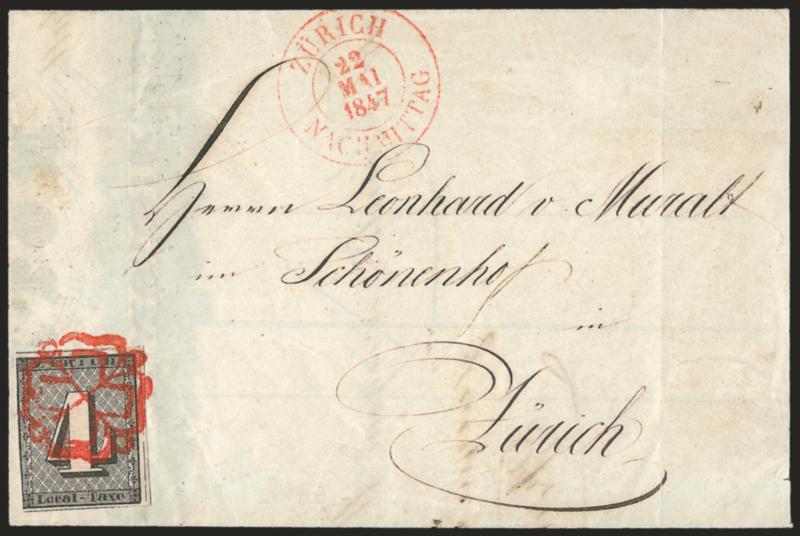 ZÜRICH
22
MAI
1847
NACHMITTAG
Herrn Leonhard v. Muralt
im Schönenhof
in
Zürich
ZÜRICH
4
Local-Taxe